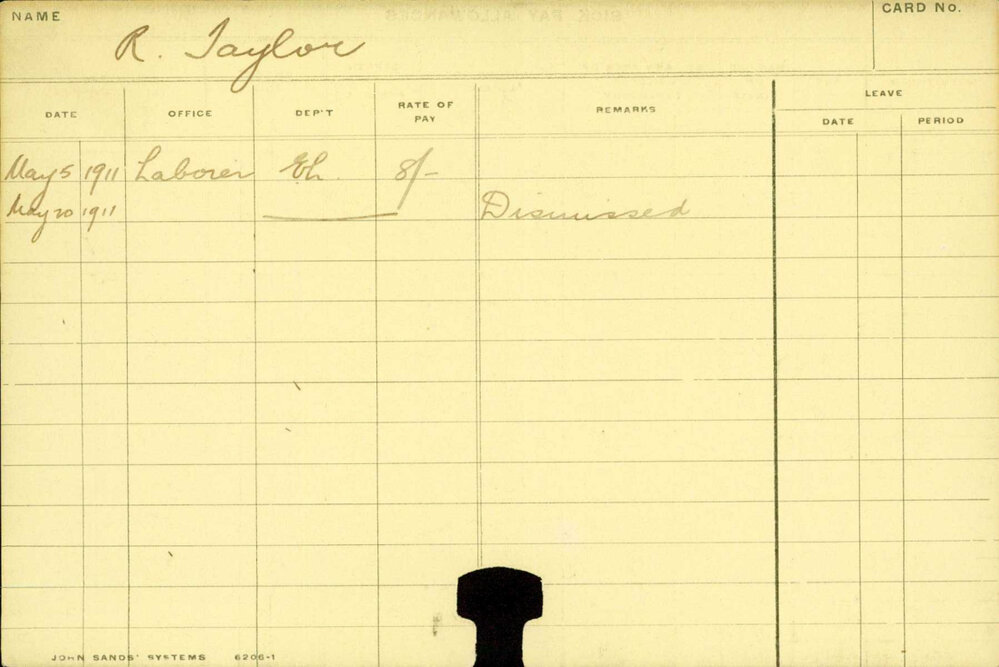 NAME
R. Taylor
CARD No.
DATE OFFICE DEP'T RATE OF PAY REMARKS LEAVE
DATE PERIOD
May 5 1911 Laborer 8/-
May 20 1911 Dismissed
JOHN SANDS' SYSTEMS 6206-1